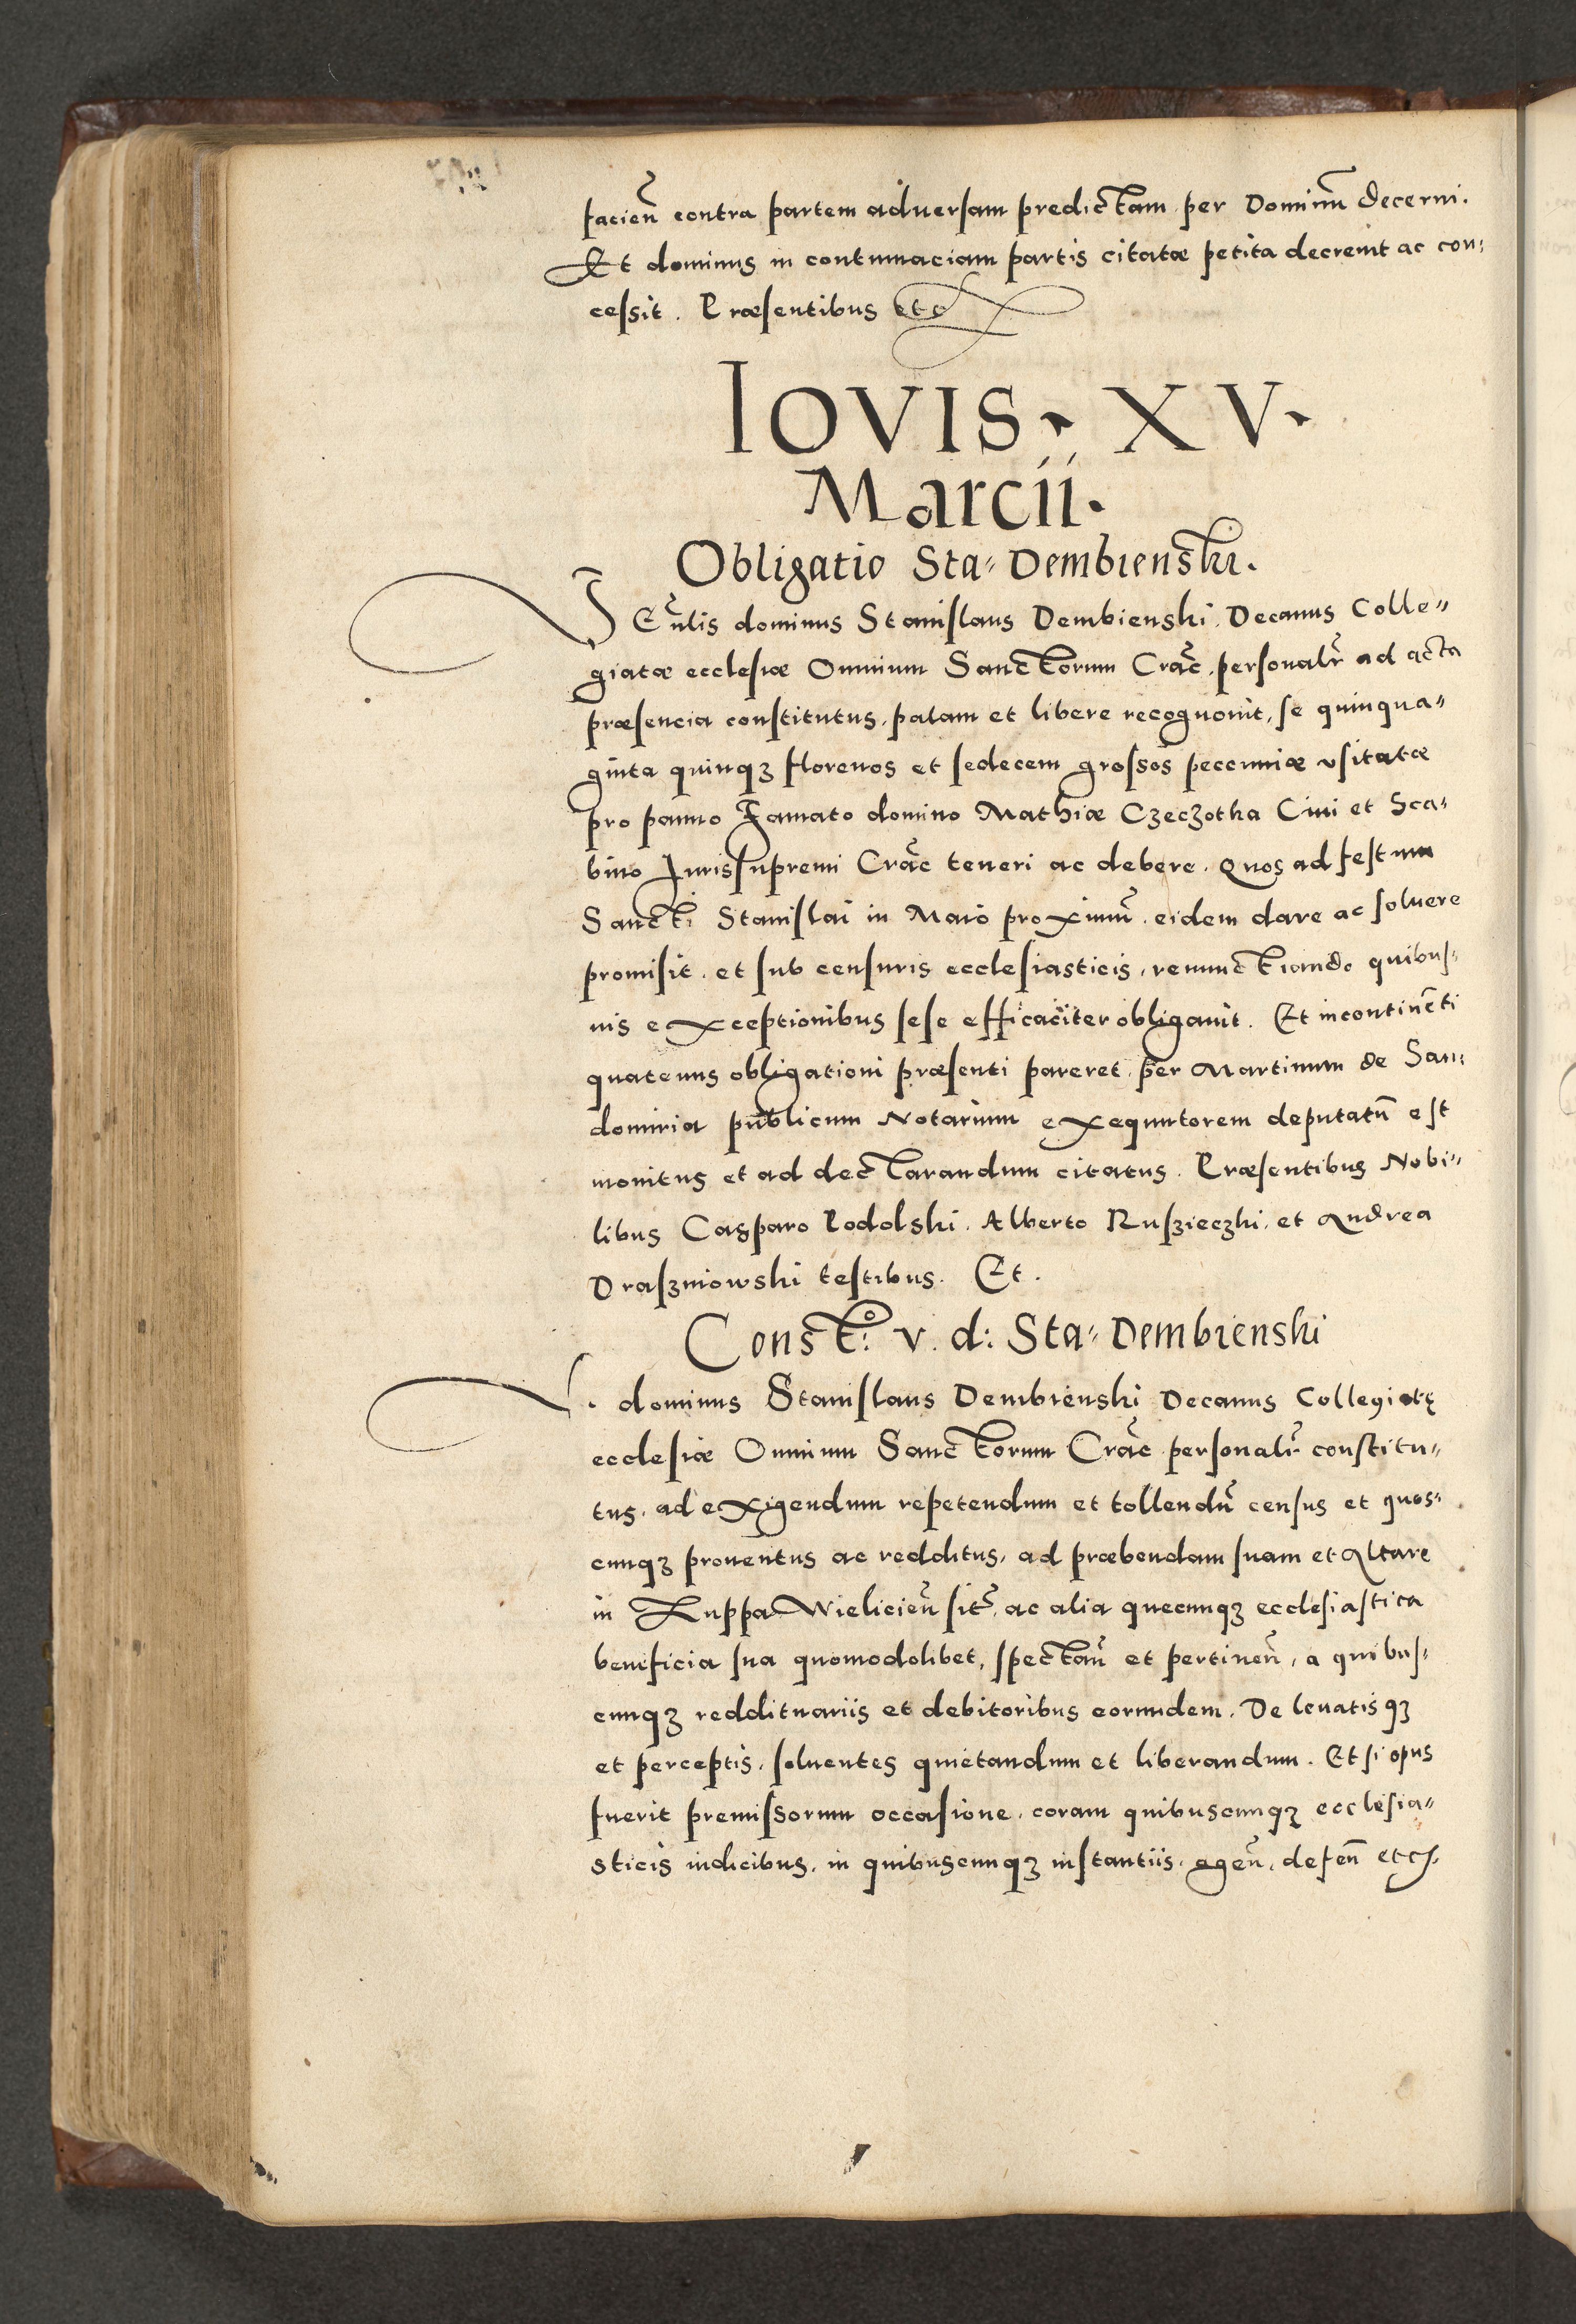 facień contra partem aduersam predictam per Dominū decerni.
Et dominus in contumaciam partis citatæ petita decreuit ac con:
cessit. Præsentibus etc
IOVIS. XV.
Marcii.
Obligatio Sta: Dembienski.
Veñlis dominus Stanislaus Dembienski. Decanus Colle:
giatæ ecclesiæ Omnium Sanctorum Crac̄. personalr̄ ad acta
præsencia constitutus, palam et libere recognouit, se quinqua:
ginta quinqꝫ florenos et sedecem grossos peccuniæ vsitatæ
pro panno Famato domino Mathiæ Czeczotka Ciui et Sca:
bino Iurissupremi Crac̄ teneri ac debere. Quos ad festum
Sancti Stanislai in Maio proximū. eidem dare ac soluere
promisit. et sub censuris ecclesiasticis, renunctiando quibus:
uis exceptionibus sese efficaciter obligauit. Et incontinēti
quatenus obligationi præsenti pareret per Martinum de San:
domiria publicum Notarium exequutorem deputatū est
monitus et ad declarandum citatus. Præsentibus Nobi:
libus Casparo Podolski. Alberto Ruszieczki. et Andrea
Draszniowski testibus. Et.
Constᵒ: v. d: Sta: Dembienski
V. dominus Stanislaus Dembienski Decanus Collegiatę
ecclesiæ Omnium Sanctorum Crac̄ personalr̄ constitu:
tus. ad exigendum repetendum et tollendū census et quos:
cunqꝫ prouentus ac redditus, ad præbendam suam et Altare
in Zuppa Wielicień sit̄, ac alia quecunqꝫ ecclesiastica
beneficia sua quomodolibet, spectań et pertineń, a quibus:
cunqꝫ reddituariis et debitoribus eorundem. De leuatisqꝫ
et perceptis, soluentes quietandum et liberandum. Et si opus
fuerit premissorum occasione, coram quibuscunqꝫ ecclesia:
sticis iudicibus, in quibuscunqꝫ instantiis, ageń, defeń etc.